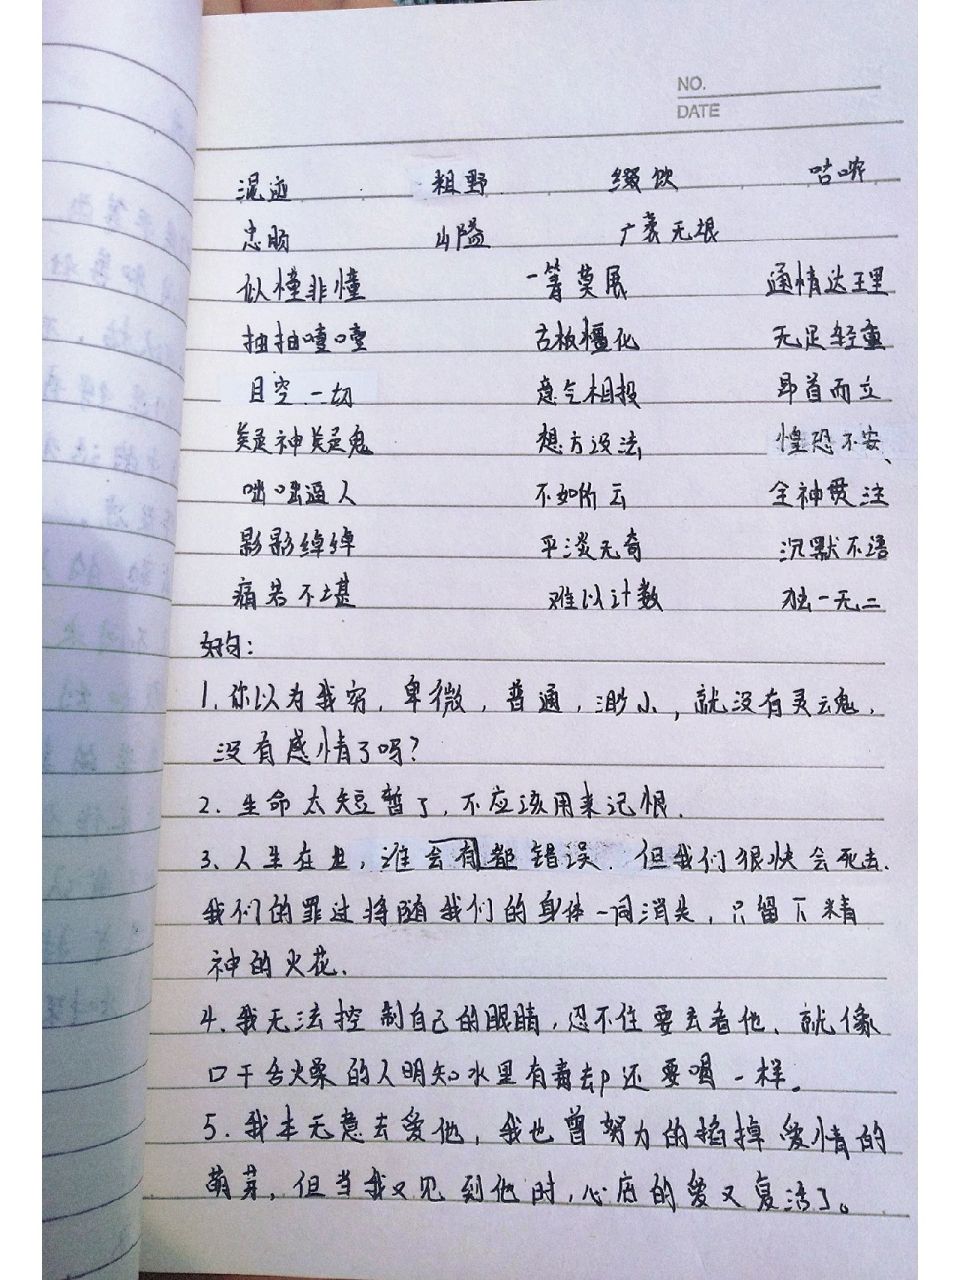 NO.
DATE
混迹 粗野 缀饮 咕哝
忠顺 山隘 广袤无垠
似懂非懂 一筹莫展 通情达理
抽抽噎噎 古板僵化 无足轻重
目空一切 意气相投 昂首而立
疑神疑鬼 想方设法 惶恐不安、
咄咄逼人 不如所云 全神贯注
影影绰绰 平淡无奇 沉默不语
痛苦不堪 难以计数 独一无二
好句:
1.你以为我穷,卑微,普通,渺小,就没有灵魂,
没有感情了吗?
2.生命太短暂了,不应该用来记恨.
3.人生在世,谁会有都错误.但我们很快会死去.
我们的罪过将随我们的身体一同消失,只留下精
神的火花.
4.我无法控制自己的眼睛,忍不住要去看他、就像
口干舌燥的人明知水里有毒却还要喝一样。
5.我本无意去爱他,我也曾努力的掐掉爱情的
萌芽,但当我又见到他时,心底的爱又复活了。